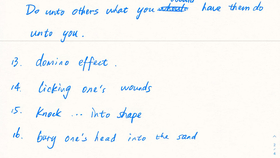 Do unto others what you would have them do
unto you.
13. domino effect.
14. licking one's wounds
15. knock ... into shape
16. bury one's head into the sand